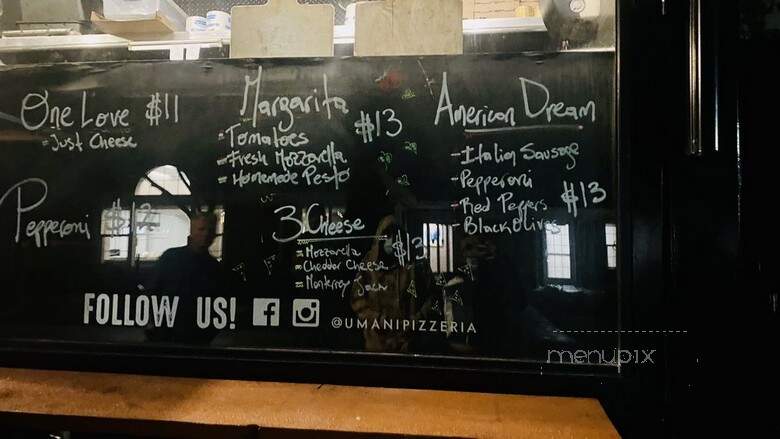 One Love $11
Just Cheese
Pepperoni $12
Margarita
$13
Tomatoes
Fresh Mozzarella
Homemade Pesto
3 Cheese
$13
Mozzarella
Cheddar Cheese
Monterey Jack
American Dream
-Italian Sausage
-Pepperoni
-Red Peppers $13
-Black Olives
FOLLOW US!
@UMANIPIZZERIA
menupix